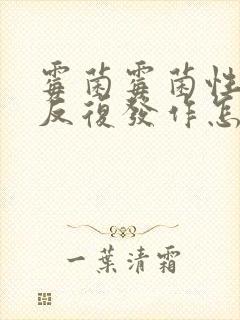 霉菌霉菌性
反復發作怎
一葉清霜